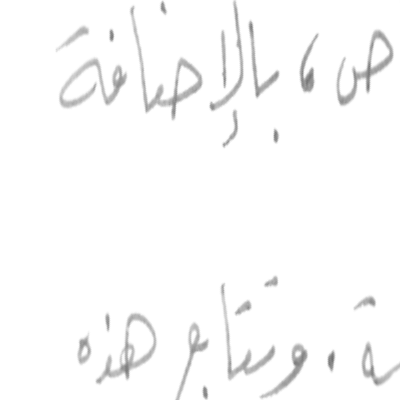 ص، بالإضافة
ة. وتتابع هذه